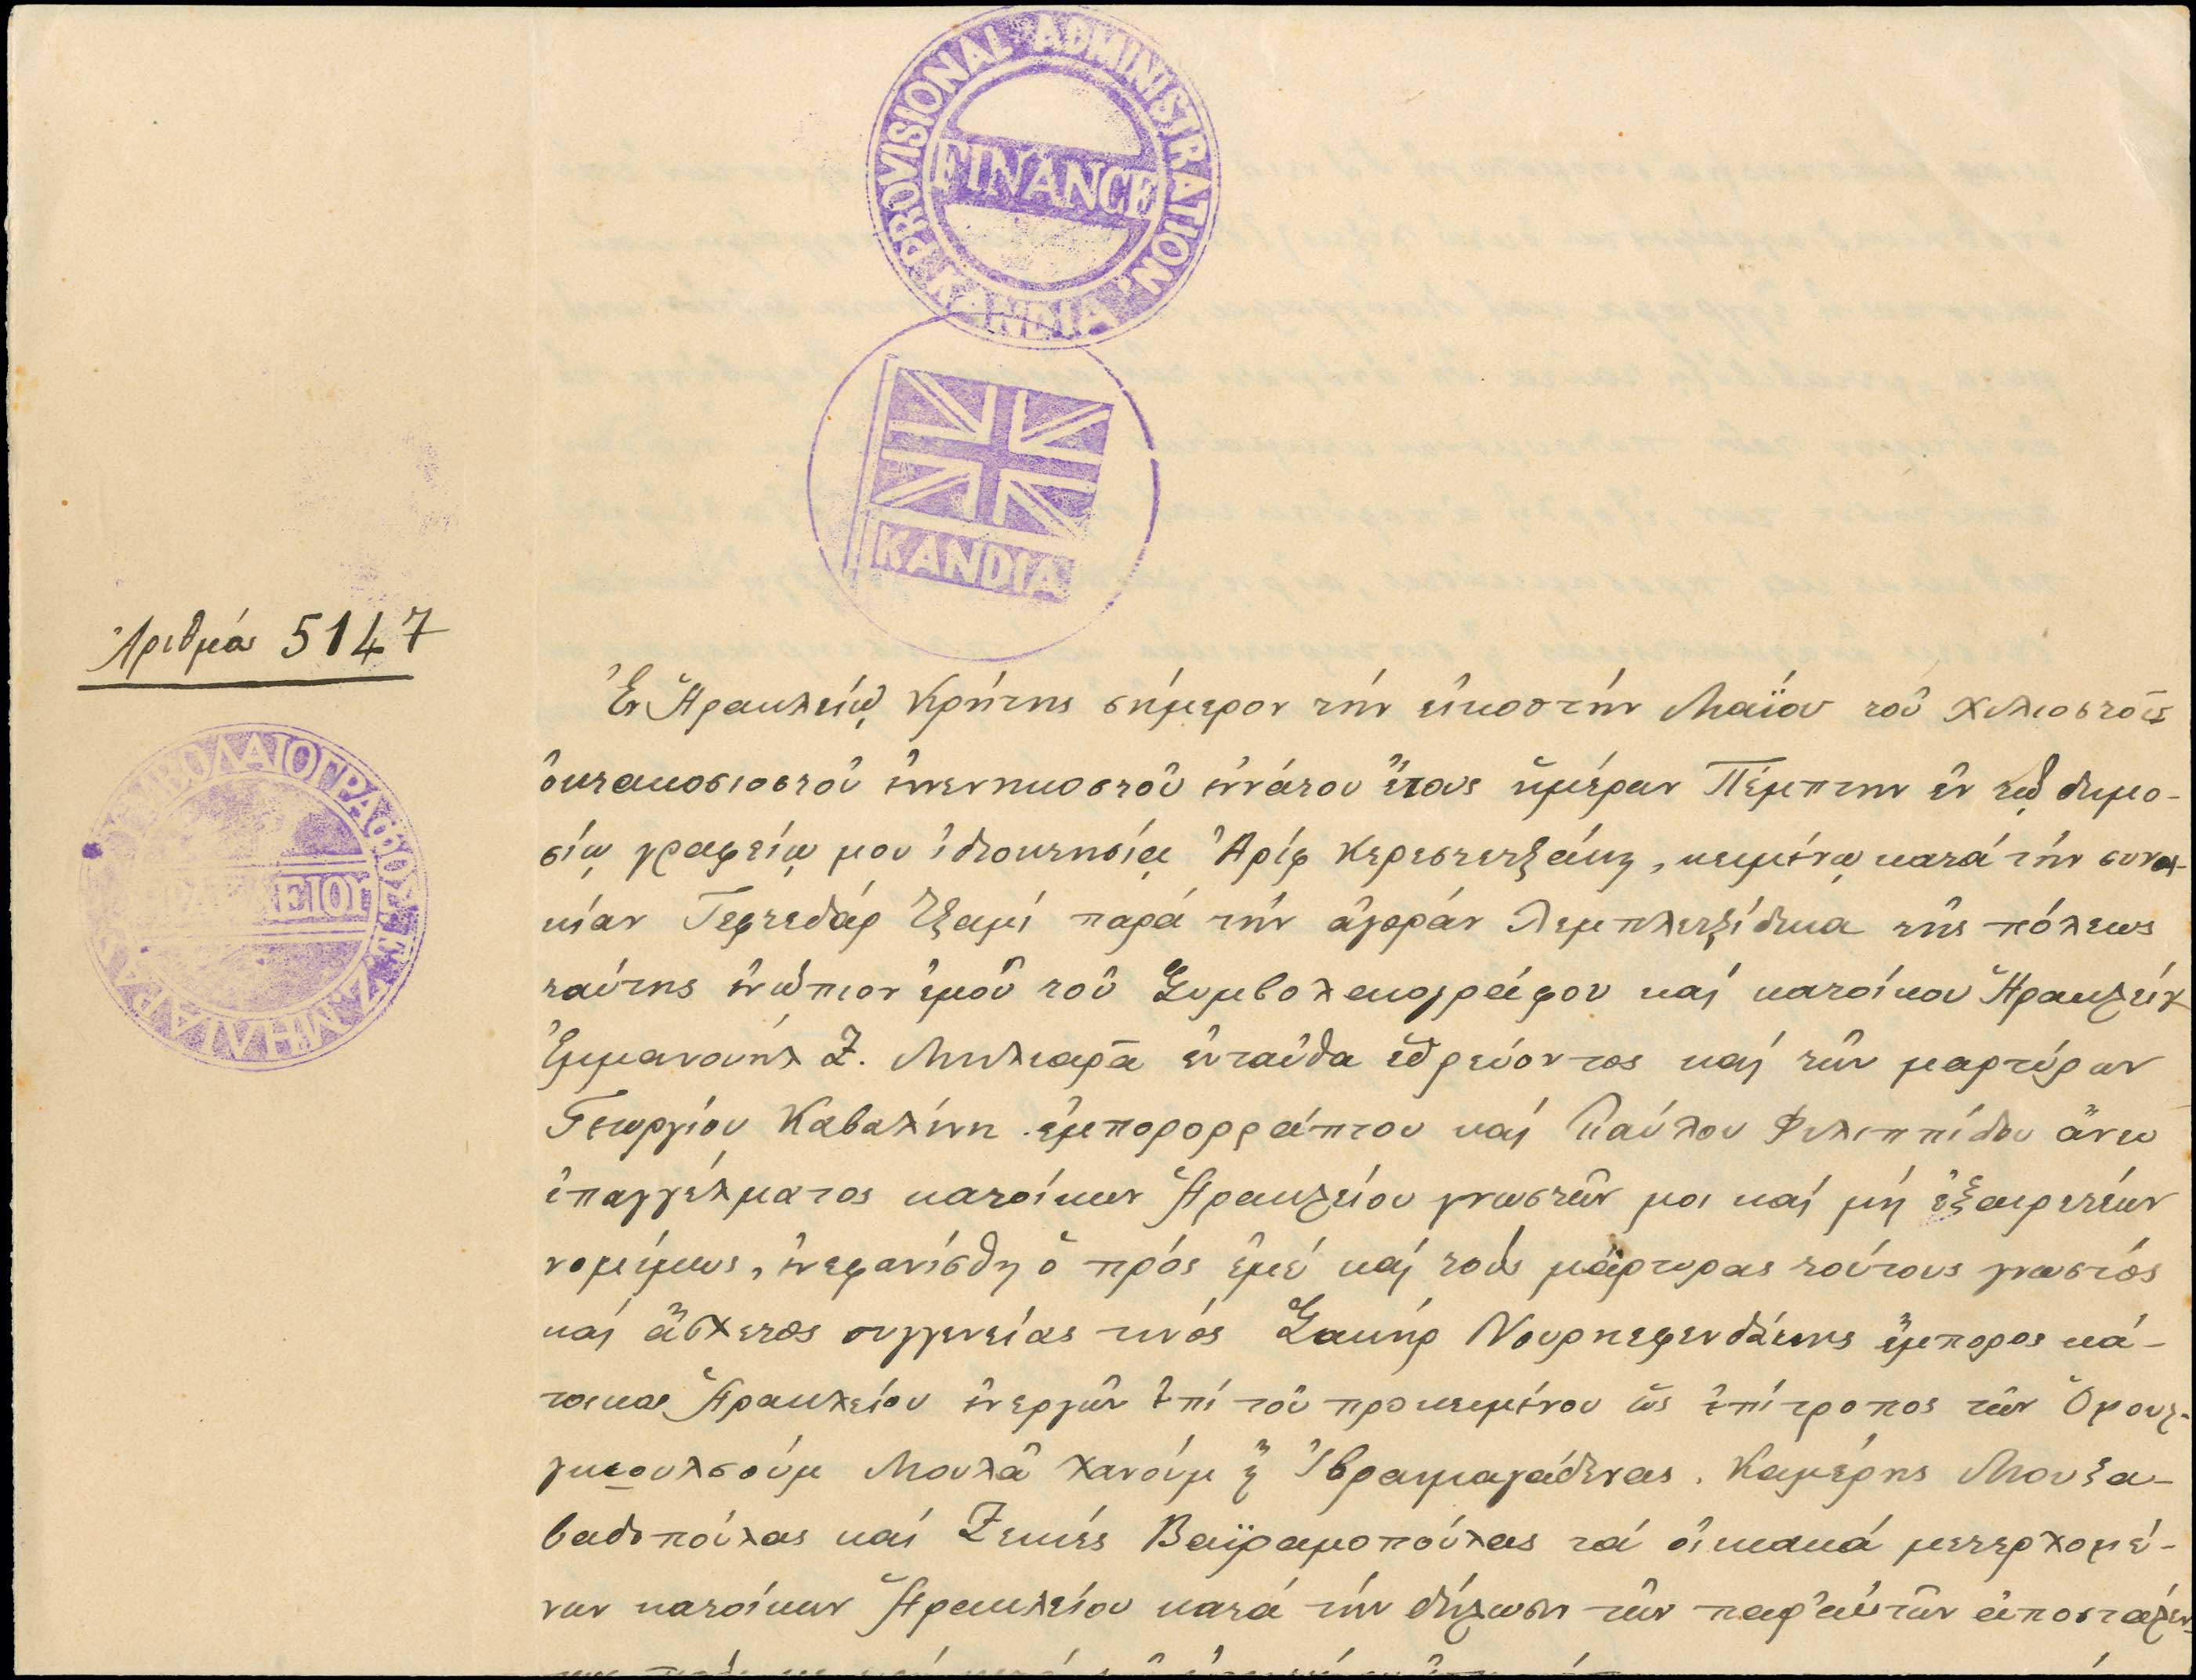 PROVISIONAL ADMINISTRATION, KANDIA
FINANCE
KANDIA
Ἀριθμός 5147
ΣΥΜΒΟΛΑΙΟΓΡΑΦΟΣ Ε. Ζ. ΜΗΛΙΑΡΑΣ
ΗΡΑΚΛΕΙΟΥ
Ἐν Ἡρακλείῳ Κρήτης σήμερον τήν εἰκοστήν Μαΐου τοῦ χιλιοστοῦ
ὀκτακοσιοστοῦ ἐνενηκοστοῦ ἐννάτου ἔτους ἡμέραν Πέμπτην ἐν τῷ δημο-
σίῳ γραφείῳ μου ἰδιοκτησίᾳ Ἀρίφ Κερεστετζάκη, κειμένῳ κατά τήν συνοι-
κίαν Τεφτεδάρ Τζαμί παρά τήν ἀγοράν Λεμπλετζίδικα τῆς πόλεως
ταύτης ἐνώπιον ἐμοῦ τοῦ Συμβολαιογράφου καί κατοίκου Ἡρακλείου
Ἐμμανουήλ Ζ. Μηλιαρᾶ ἐνταῦθα ἑδρεύοντος καί τῶν μαρτύρων
Γεωργίου Καβαλίνη ἐμπορορράπτου καί Παύλου Φιλιππίδου ἄνευ
ἐπαγγέλματος κατοίκων Ἡρακλείου γνωστῶν μοι καί μή ἐξαιρετέων
νομίμως, ἐνεφανίσθη ὁ πρός ἐμέ καί τούς μάρτυρας τούτους γνωστός
καί ἄσχετος συγγενείας τινός Σακήρ Νουρηεφενδάκης ἔμπορος κά-
τοικος Ἡρακλείου ἐνεργῶν ἐπί τοῦ προκειμένου ὡς ἐπίτροπος τῶν Ὀμουζ-
γκιουλσούμ Μουλᾶ Χανούμ ἤ Ἰβραημαγάδενας, Καμέρης Μουξα-
βαδοπούλας καί Ζεκιές Βαϊραμοπούλας τά οἰκιακά μετερχομέ-
νων κατοίκων Ἡρακλείου κατά τήν δήλωσιν τῶν παρ' αὐτῶν ἀποσταλέν-